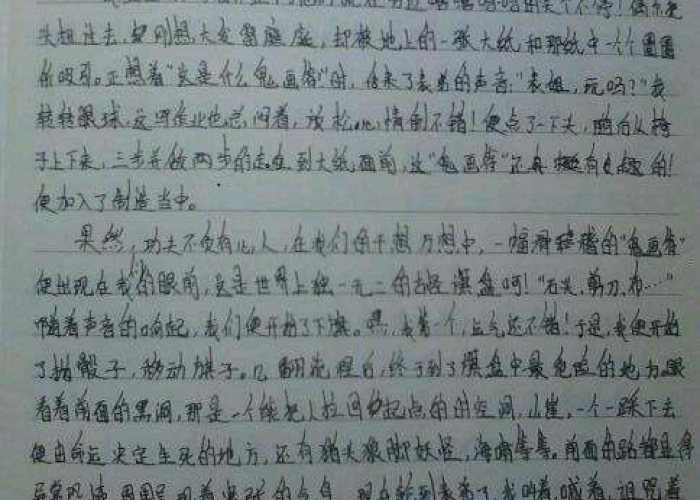 头扭过去,却刚想大发雷庭度,却被地上的一张大纸和那纸中一个个圆圈
所吸引。正想着"这是什么鬼画符"时,传来了表弟的声音:"表姐,玩吗?"我
转转眼球,这写作业也总闷着,放松,心情倒不错!便点了一下头,随后从椅
子上下来,三步并做两步的走到大纸面前,这"鬼画符"还真挺有趣的!
便加入了制造当中。
果然,功夫不负有心人,在我们的千想万想中,一幅滑稽的"鬼画符"
便出现在我们的眼前,这是世界上独一无二的古怪棋盘呵!"石头、剪刀、布…"
随着声音的响起,我们便开始了下棋。嘿,我第一个,运气还不错!于是,我便开始
了抛骰子,移动棋子。几翻流程后,终于到了棋盘中最危险的地方。眼
看着前面的黑洞,那是一个能把人拉回起点的时空洞,山崖,一个一踩下去
便由命运决定生死的地方,还有猪头狼脚妖怪,海啸等等。前面的路都显得
现在轮到表弟了,我叫着,喊着,诅咒着